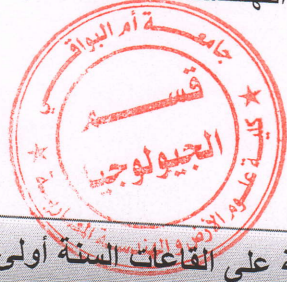 جامعة أم البواقي
قسم
الجيولوجيا
كلية علوم الأرض و الهندسة المعمارية
ة على القاعات السنة أولى